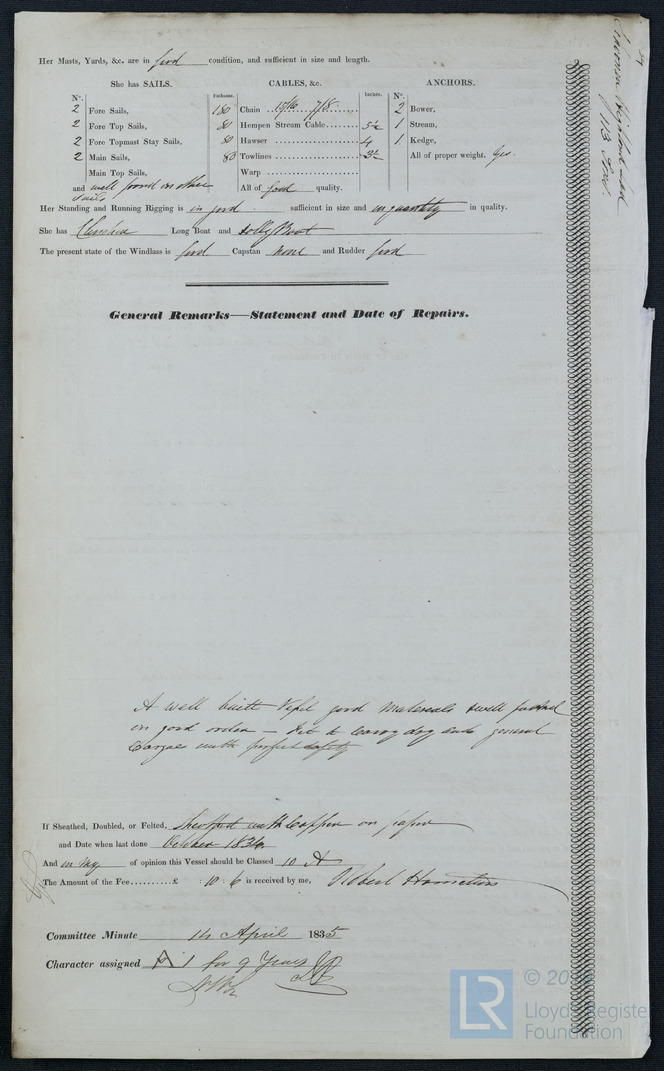 Her Masts, Yards, &c. are in good condition, and sufficient in size and length.
She has SAILS.
CABLES, &c.
ANCHORS.
N°.
Fathoms.
Inches.
N°.
2 Fore Sails, 180 Chain 7/8 2 Bower,
2 Fore Top Sails, 80 Hempen Stream Cable 5½ 1 Stream,
2 Fore Topmast Stay Sails, 80 Hawser 4 1 Kedge,
2 Main Sails, 80 Towlines 3½ All of proper weight. Yes.
Main Top Sails, Warp
and well found in other sails All of good quality.
Her Standing and Running Rigging is in good sufficient in size and in quantity in quality.
She has Long Boat and Jolly Boat
The present state of the Windlass is good Capstan None and Rudder good
General Remarks—Statement and Date of Repairs.
A well built Vessel good Materials & well
in good order – Fit to Carry dry and general
Cargoes with perfect safety
If Sheathed, Doubled, or Felted, Sheathed with Copper on paper
and Date when last done October 1834
And in my of opinion this Vessel should be Classed 10 A
The Amount of the Fee..........£ : 10 : 6 is received by me, Robert
Committee Minute 14 April 1835
Character assigned A 1 for 9 Years
LR
Lloyd's Register
Foundation